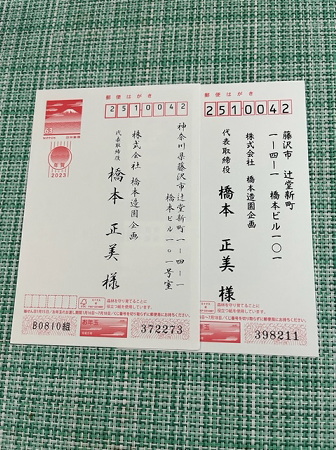 郵便はがき
2510042
神奈川県藤沢市辻堂新町一-四-一
橋本ビル一〇一号室
株式会社 橋本造園企画
代表取締役
橋本 正美 様
63
年賀
2023
B0810組
372273
郵便はがき
2510042
藤沢市 辻堂新町
一-四-一 橋本ビル一〇一
株式会社 橋本造園企画
代表取締役 橋本 正美 様
398211